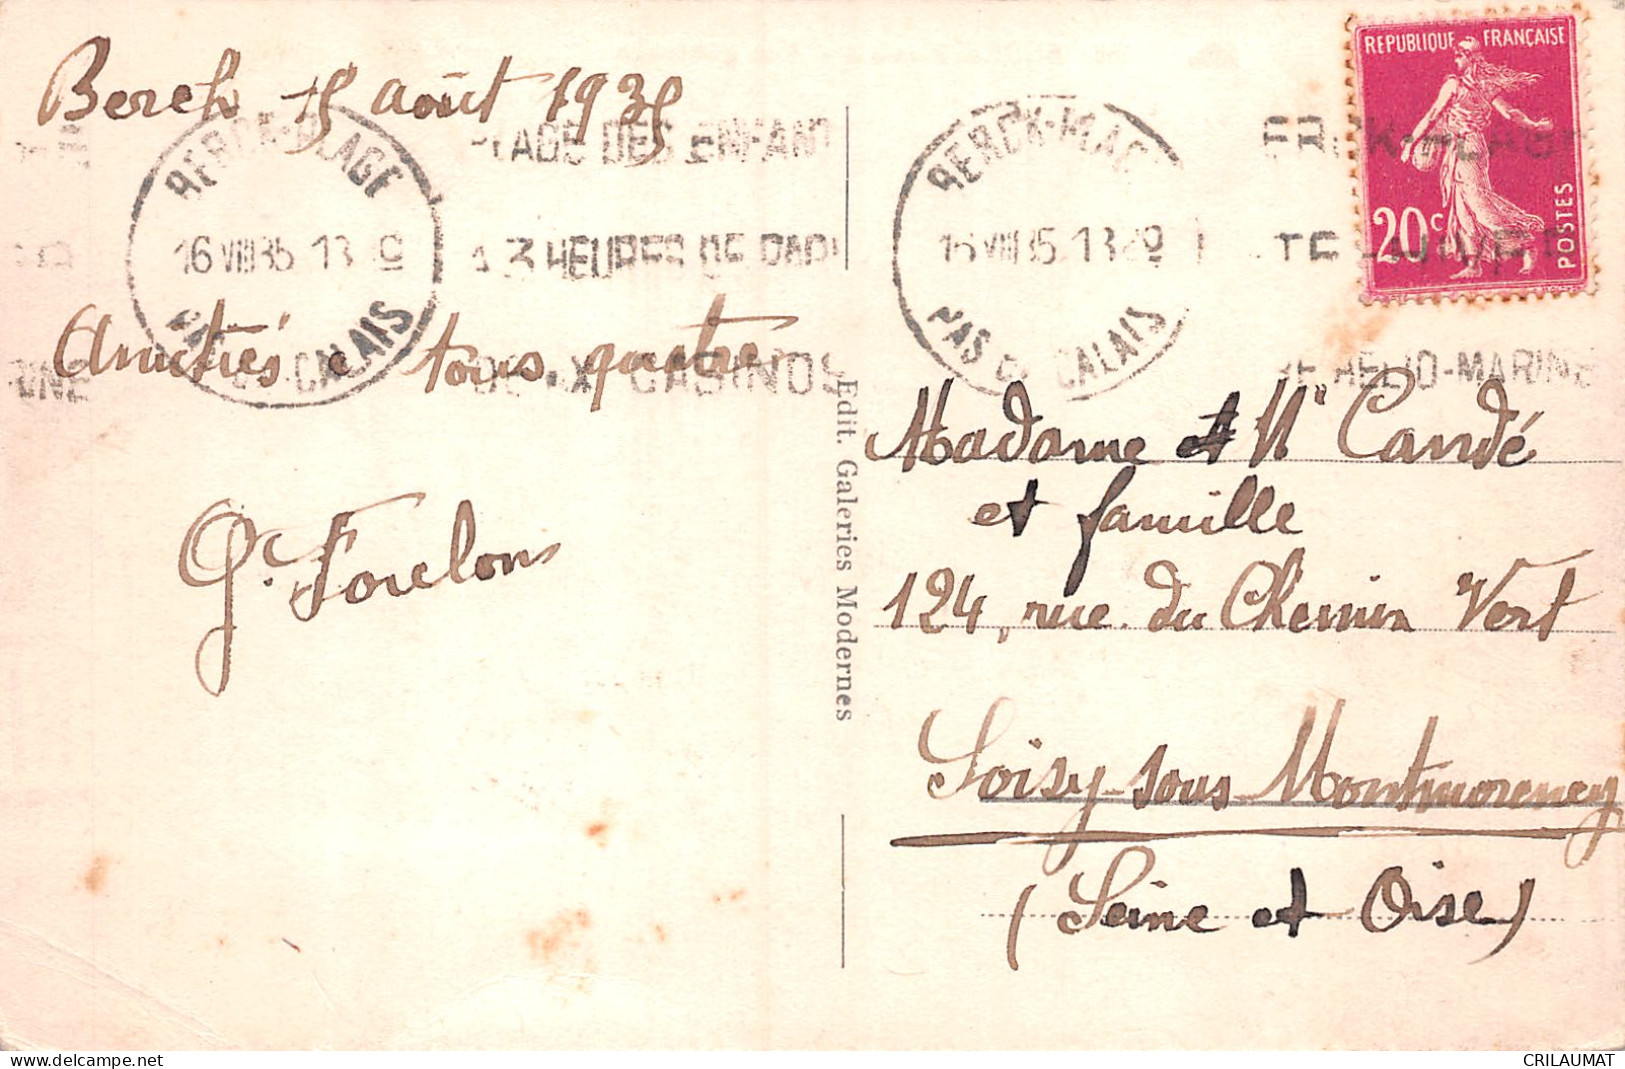 Berck 15 août 1935
Amitiés à tous quatre
G. Foulon
BERCK-PLAGE
16 VIII 35
PAS DE CALAIS
PLAGE DES ENFANTS
A 3 HEURES DE PARIS
DEUX CASINOS
Edit. Galeries Modernes
BERCK-PLAGE
16 VIII 35
PAS DE CALAIS
BERCK-PLAGE
HELIO-MARINE
REPUBLIQUE FRANÇAISE
20c
POSTES
Madame et Mr Candé
et famille
124, rue du Chemin Vert
Soisy-sous-Montmorency
(Seine et Oise)
CRILAUMAT